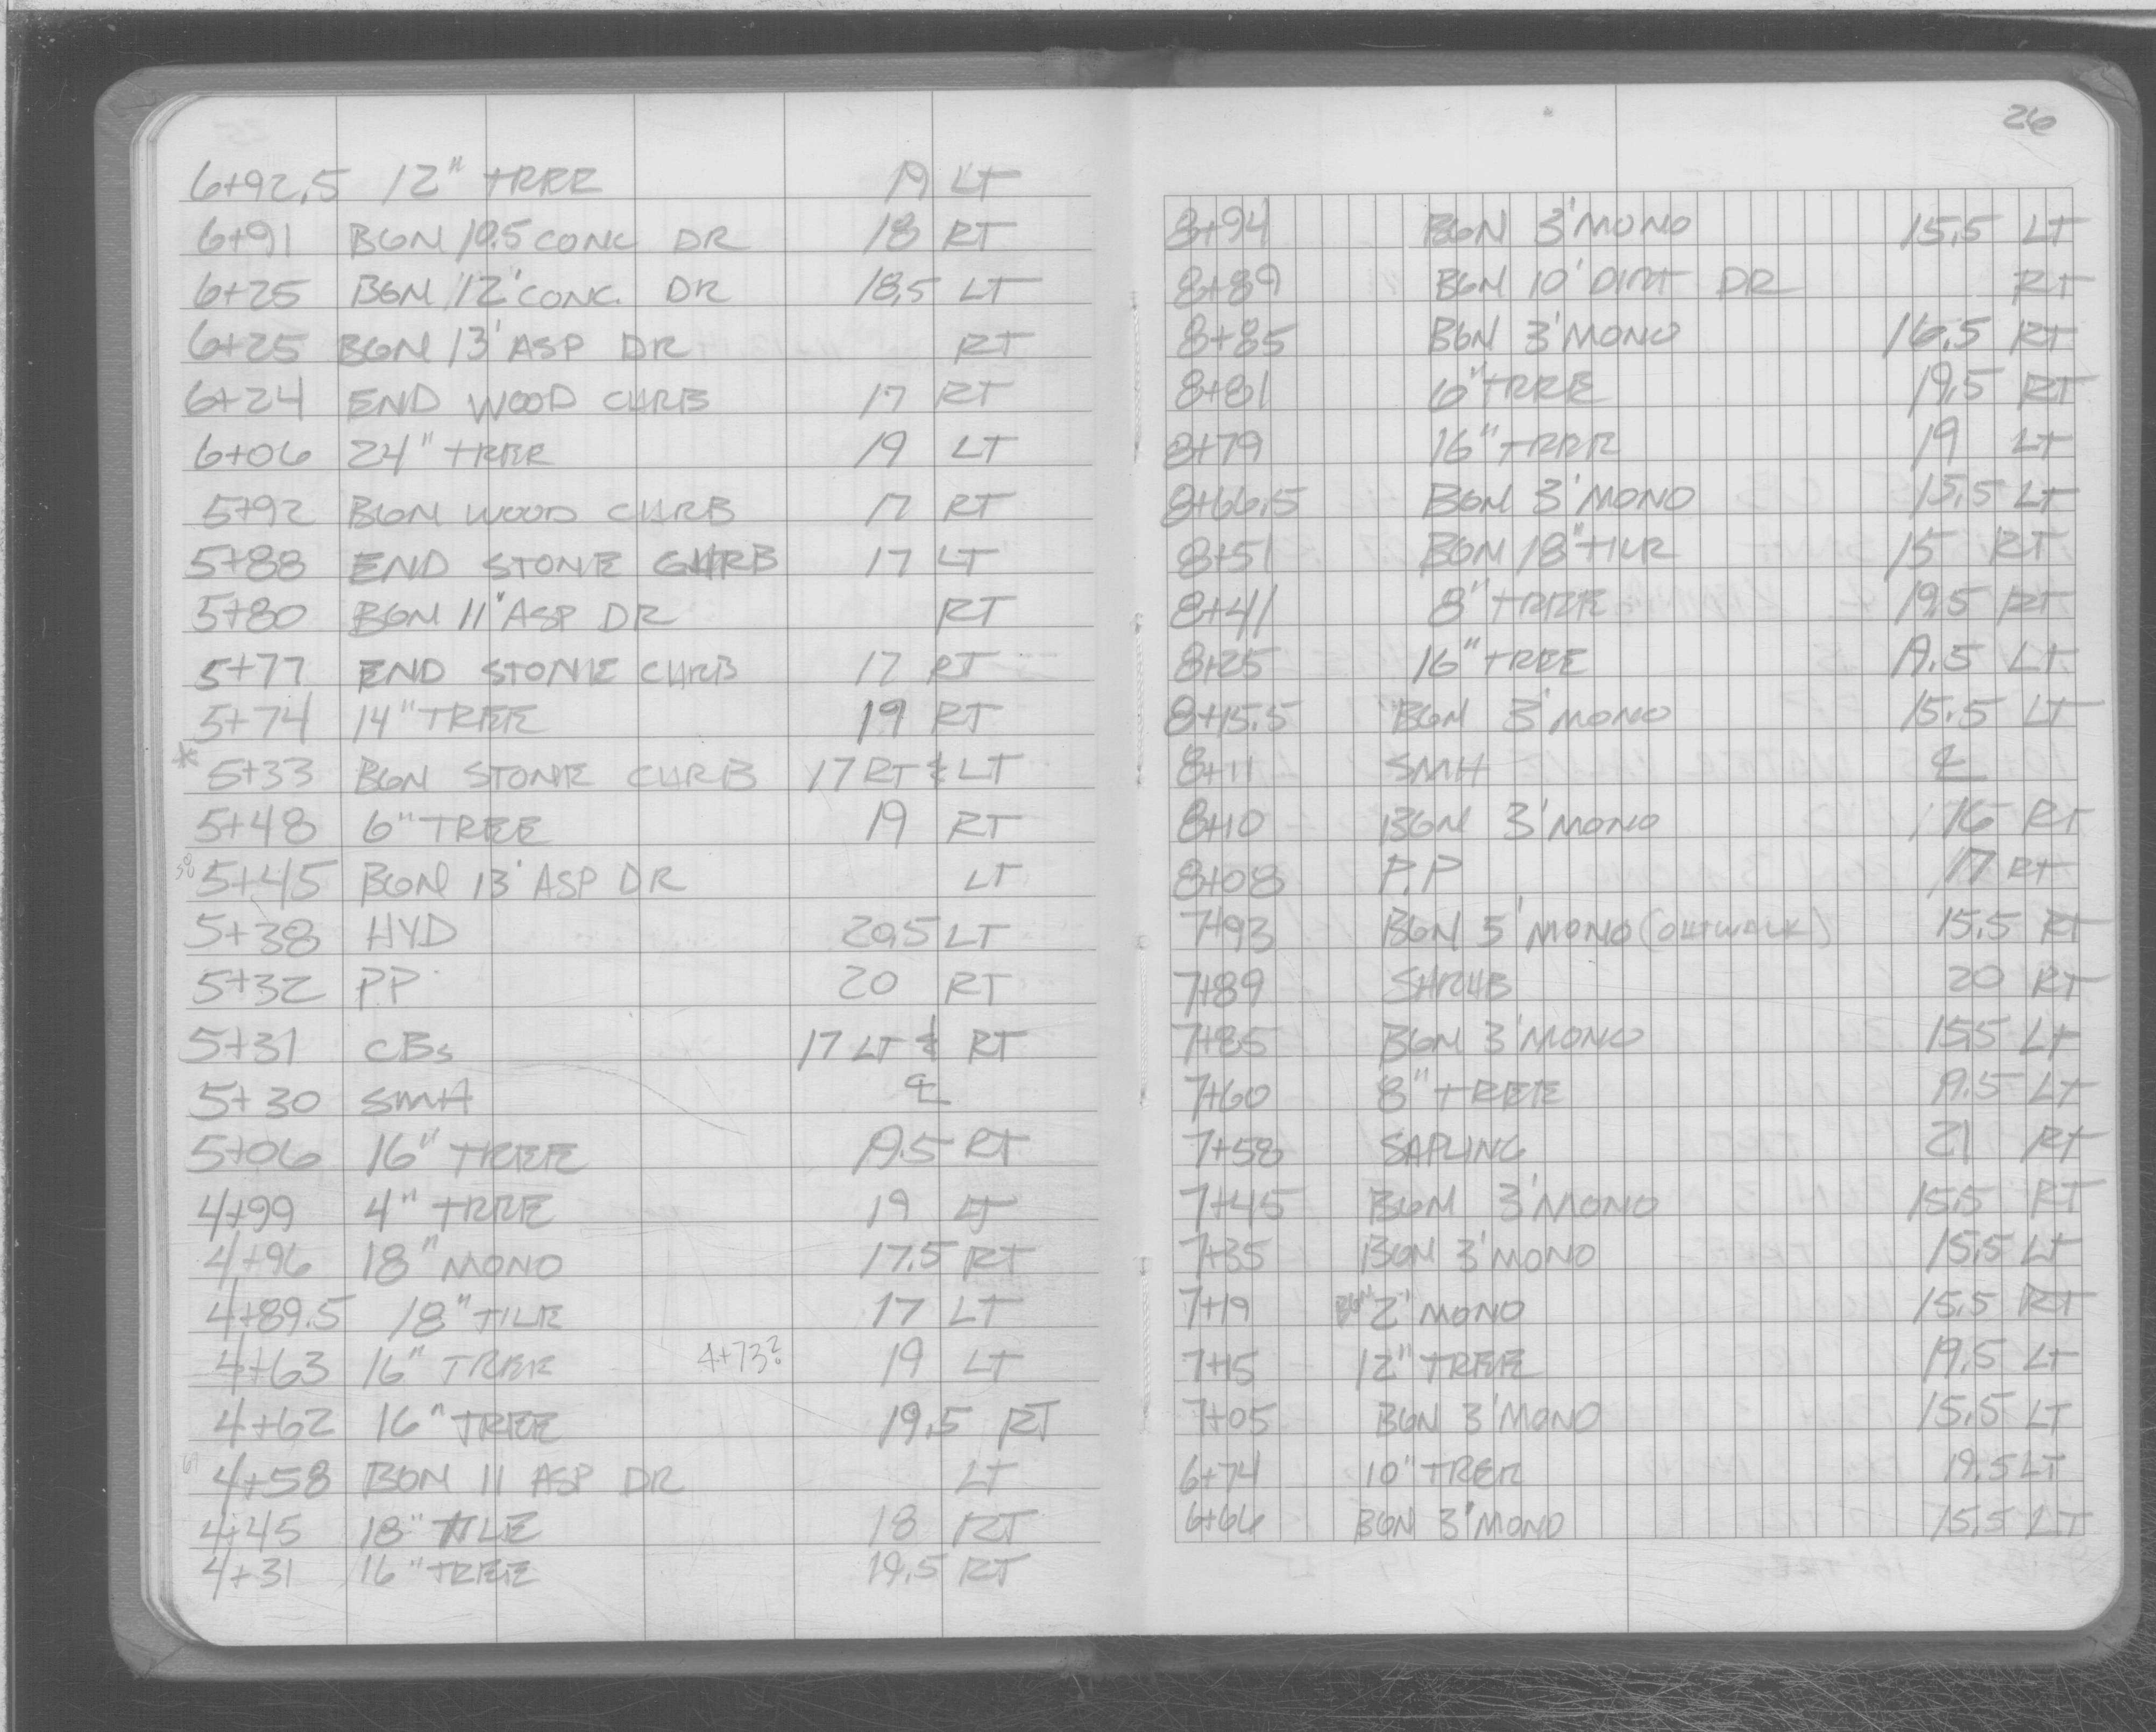 6+92.5 12" TREE 19 LT
6+91 BGN 10.5 CONC DR 18 RT
6+25 BGN 12' CONC. DR 18.5 LT
6+25 BGN 13' ASP DR RT
6+24 END WOOD CURB 17 RT
6+06 24" TREE 19 LT
5+92 BGN WOOD CURB 17 RT
5+88 END STONE CURB 17 LT
5+80 BGN 11' ASP DR RT
5+77 END STONE CURB 17 RT
5+74 14" TREE 19 RT
* 5+33 BGN STONE CURB 17 RT & LT
5+48 6" TREE 19 RT
58 5+45 BGN 13' ASP DR LT
5+38 HYD 20.5 LT
5+32 PP 20 RT
5+31 CBs 17 LT & RT
5+30 SMH ℄
5+06 16" TREE 19.5 RT
4+99 4" TREE 19 LT
4+96 18" MONO 17.5 RT
4+89.5 18" TILE 17 LT
4+63 16" TREE 4+73? 19 LT
4+62 16" TREE 19.5 RT
4+58 BGN 11 ASP DR LT
4+45 18" TILE 18 RT
4+31 16" TREE 19.5 RT
26
8+94 BGN 3' MONO 15.5 LT
8+89 BGN 10' DIRT DR RT
8+85 BGN 3' MONO 16.5 RT
8+81 6" TREE 19.5 RT
8+79 16" TREE 19 LT
8+66.5 BGN 3' MONO 15.5 LT
8+51 BGN 18" TILE 15 RT
8+41 8" TREE 19.5 RT
8+25 16" TREE 19.5 LT
8+15.5 BGN 3' MONO 15.5 LT
8+11 SMH ℄
8+10 BGN 3' MONO 16 RT
8+08 P.P 17 RT
7+93 BGN 5' MONO (OUTWALK) 15.5 RT
7+89 SHRUB 20 RT
7+85 BGN 3' MONO 15.5 LT
7+60 8" TREE 19.5 LT
7+58 SAPLING 21 RT
7+45 BGN 3' MONO 15.5 RT
7+35 BGN 3' MONO 15.5 LT
7+19 BGN 2' MONO 15.5 RT
7+15 12" TREE 19.5 LT
7+05 BGN 3' MONO 15.5 LT
6+74 10" TREE 19.5 LT
6+66 BGN 3' MONO 15.5 LT